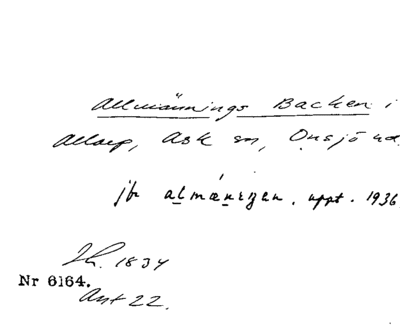 Allmännings Backen i
Allarp, Ask sn, Onsjö hd
jfr almäningen, uppt. 1936
Sk. 1834
Nr 6164.
Ant 22.